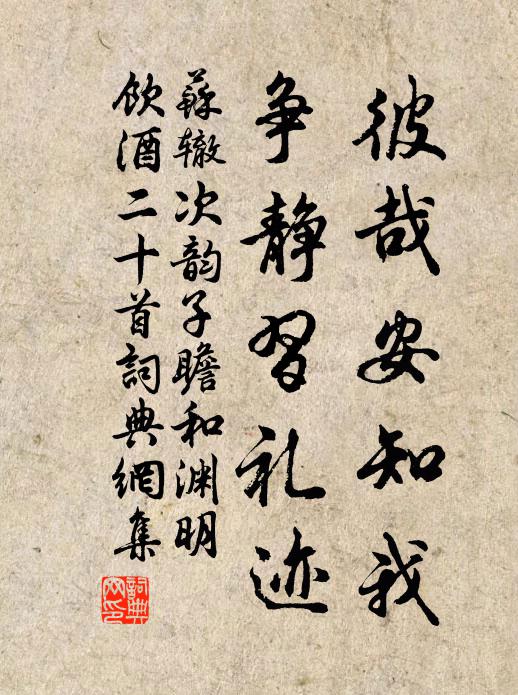 彼哉安知我
争静習礼迹
蘇辙次韵子瞻和渊明
飲酒二十首詞典網集
詞典
网印